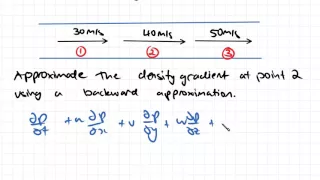 30m/s 40m/s 50m/s
① ② ③
Approximate the density gradient at point 2
using a backward approximation.
∂ρ/∂t + u ∂ρ/∂x + v ∂ρ/∂y + w ∂ρ/∂z +